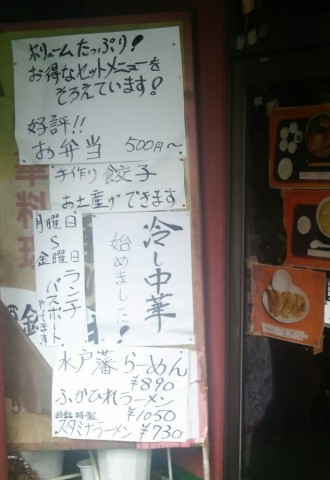 ボリュームたっぷり!
お得なセットメニューを
そろえています!
好評!!
お弁当 500円~
手作り餃子
お土産できます
月曜日
S
金曜日
ランチ
パスポート
やってます
冷し中華
始めました!
水戸藩らーめん
¥890
ふかひれラーメン
¥1050
スタミナラーメン ¥730
料理